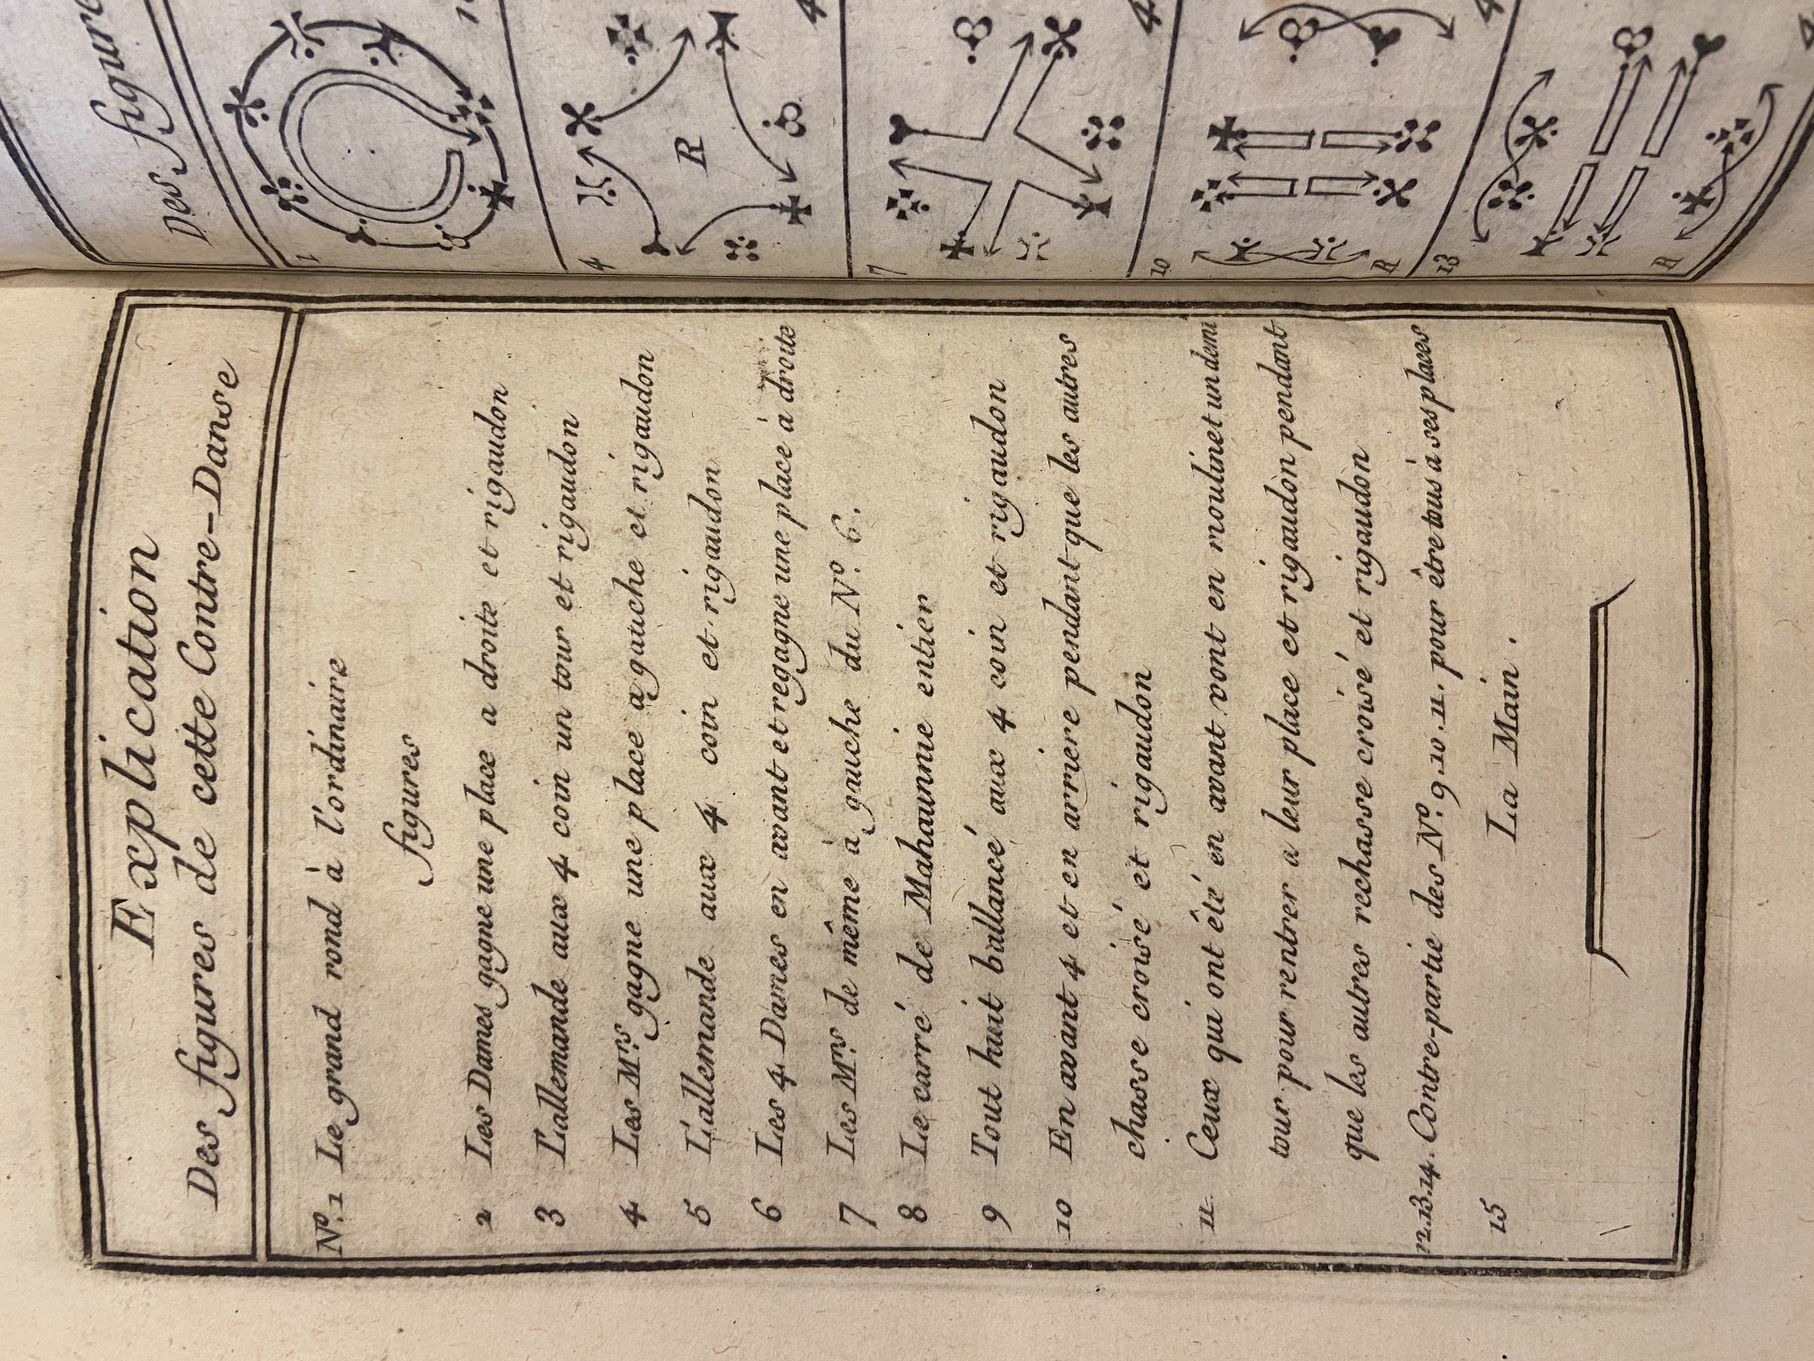 Explication
Des figures de cette Contre-Danse
Nº. 1 Le grand rond à l'ordinaire
figures
2 Les Dames gagne une place a droite et rigaudon
3 L'allemande aux 4 coin un tour et rigaudon
4 Les Mrs. gagne une place a gauche et rigaudon
5 L'allemande aux 4 coin et rigaudon
6 Les 4 Dames en avant et regagne une place à droite
7 Les Mrs. de même à gauche du Nº. 6.
8 Le carré de Mahaunnie entier
9 Tout huit ballancé aux 4 coin et rigaudon
10 En avant 4 et en arriere pendant que les autres
chasse croisé et rigaudon
11 Ceux qui ont été en avant vont en moulinet un demi
tour pour rentrer a leur place et rigaudon pendant
que les autres rechasse croisé et rigaudon
12.13.14. Contre-partie des Nº. 9.10.11. pour être tous à ses places
15 La Main.
Des figure
1
4
R
4
7
4
10
R
4
13
R
4